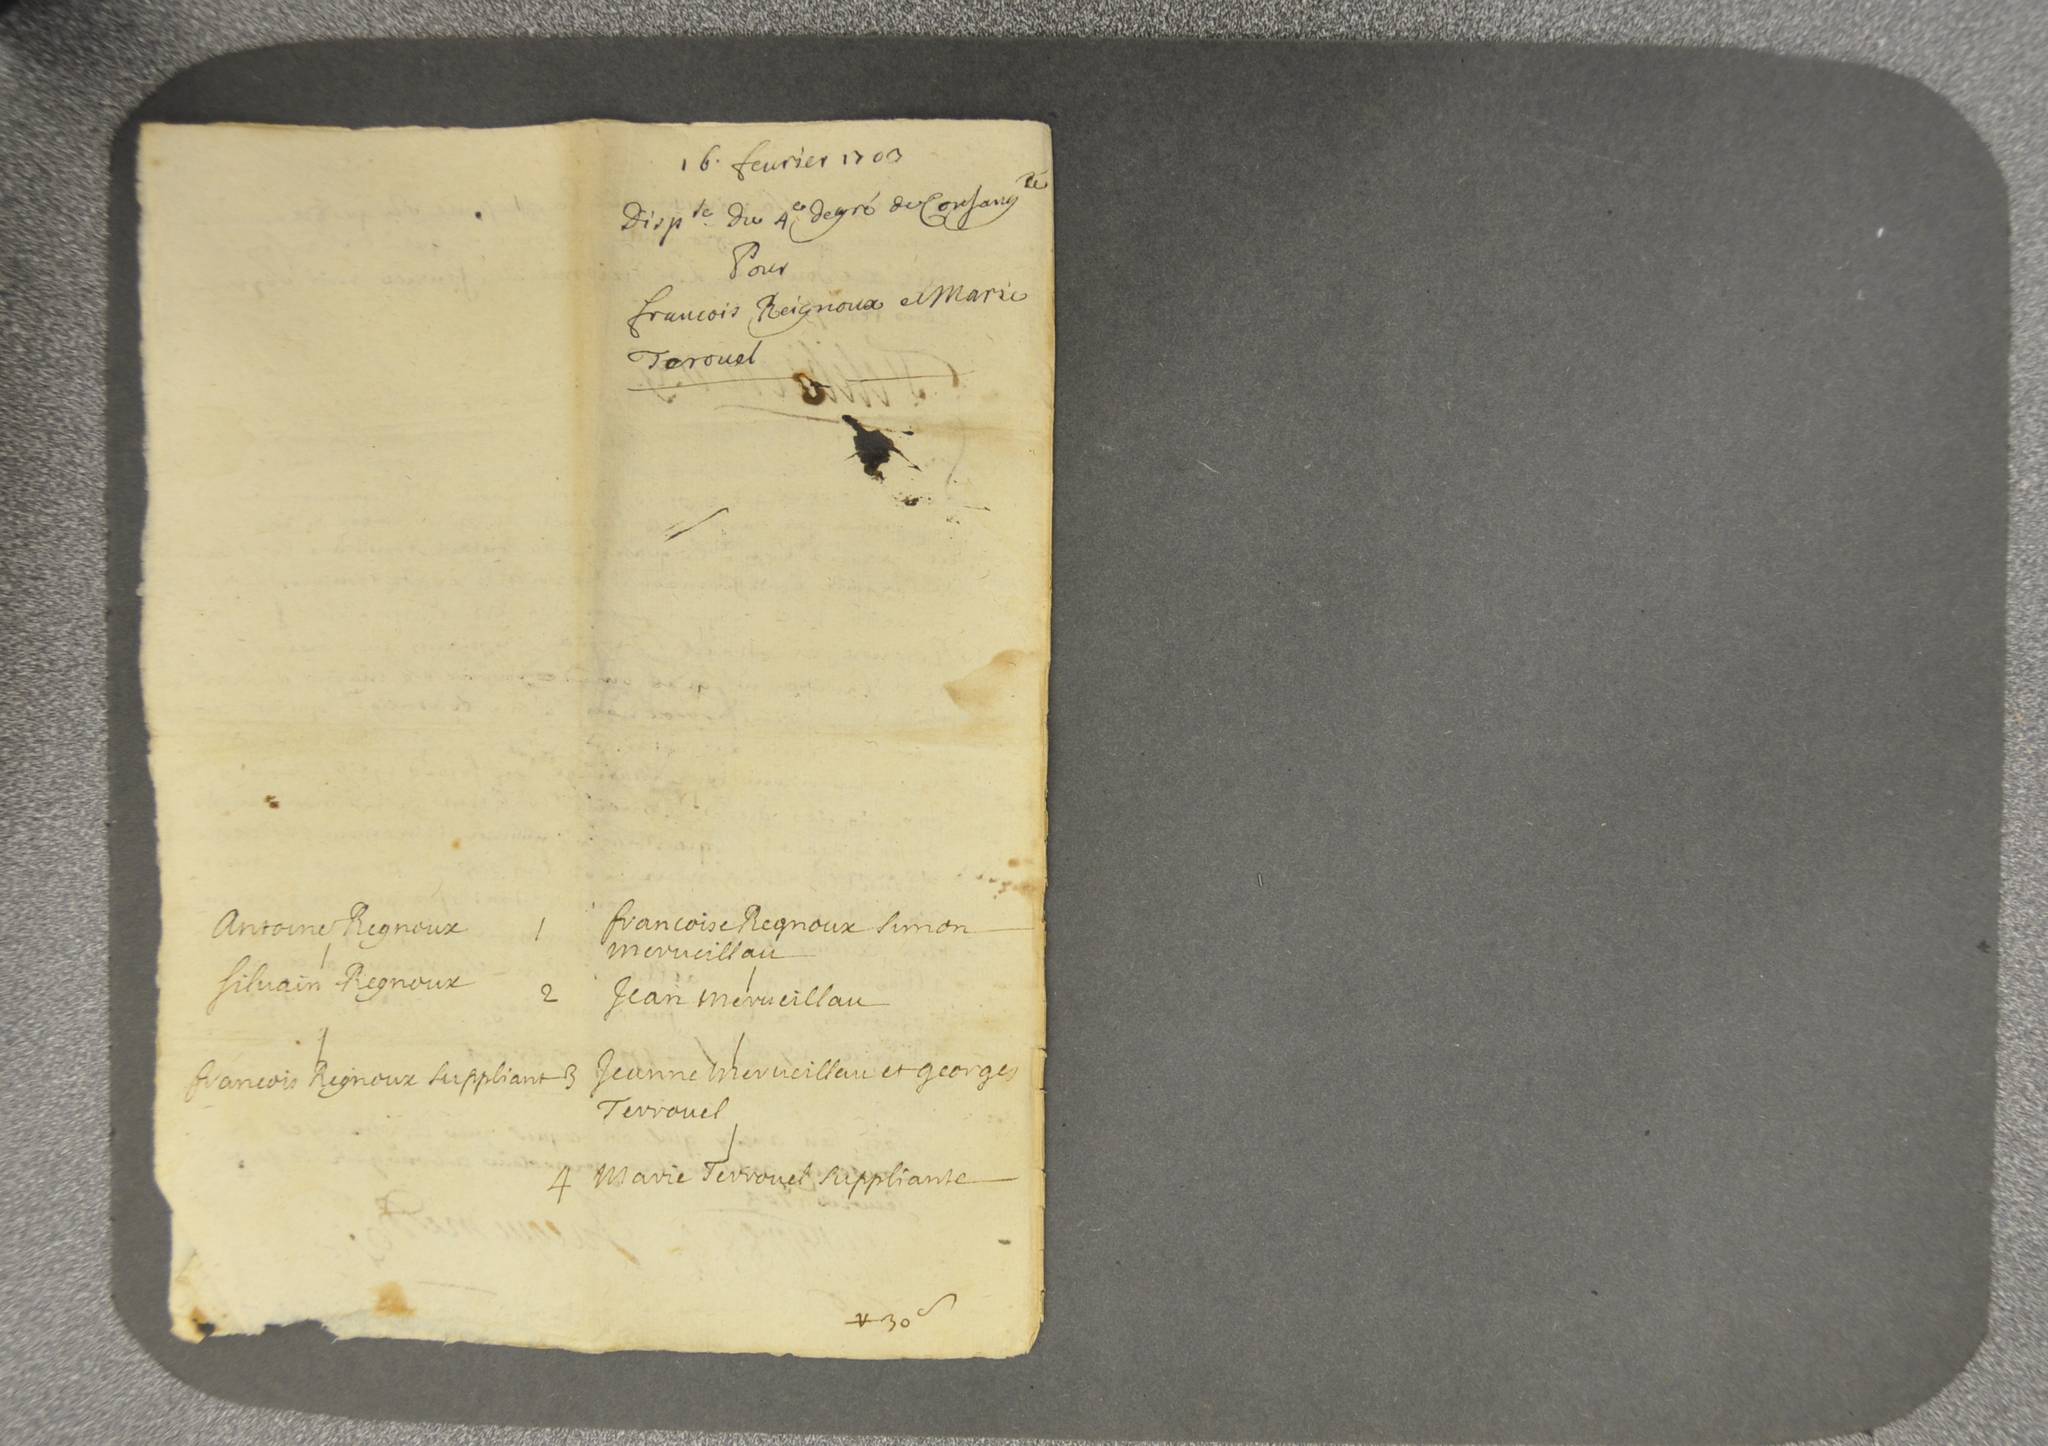 16. feurier 1703
Disp.le du 4e degré de Consang.té
Pour
francois Reignoux et Marie
Terouel
Antoine Regnoux 1 francoise Regnoux simon
merueillau
silvain Regnoux 2 Jean merueillau
francois Regnoux suppliant 3 Jeanne merueillau et georges
Terrouel
4 Marie Terrouel suppliante
30